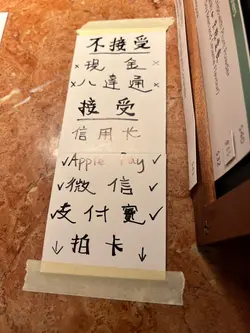 不接受
×現金×
×八達通×
接受
信用卡
✓Apple Pay✓
✓微信✓
✓支付寳✓
↓拍卡↓